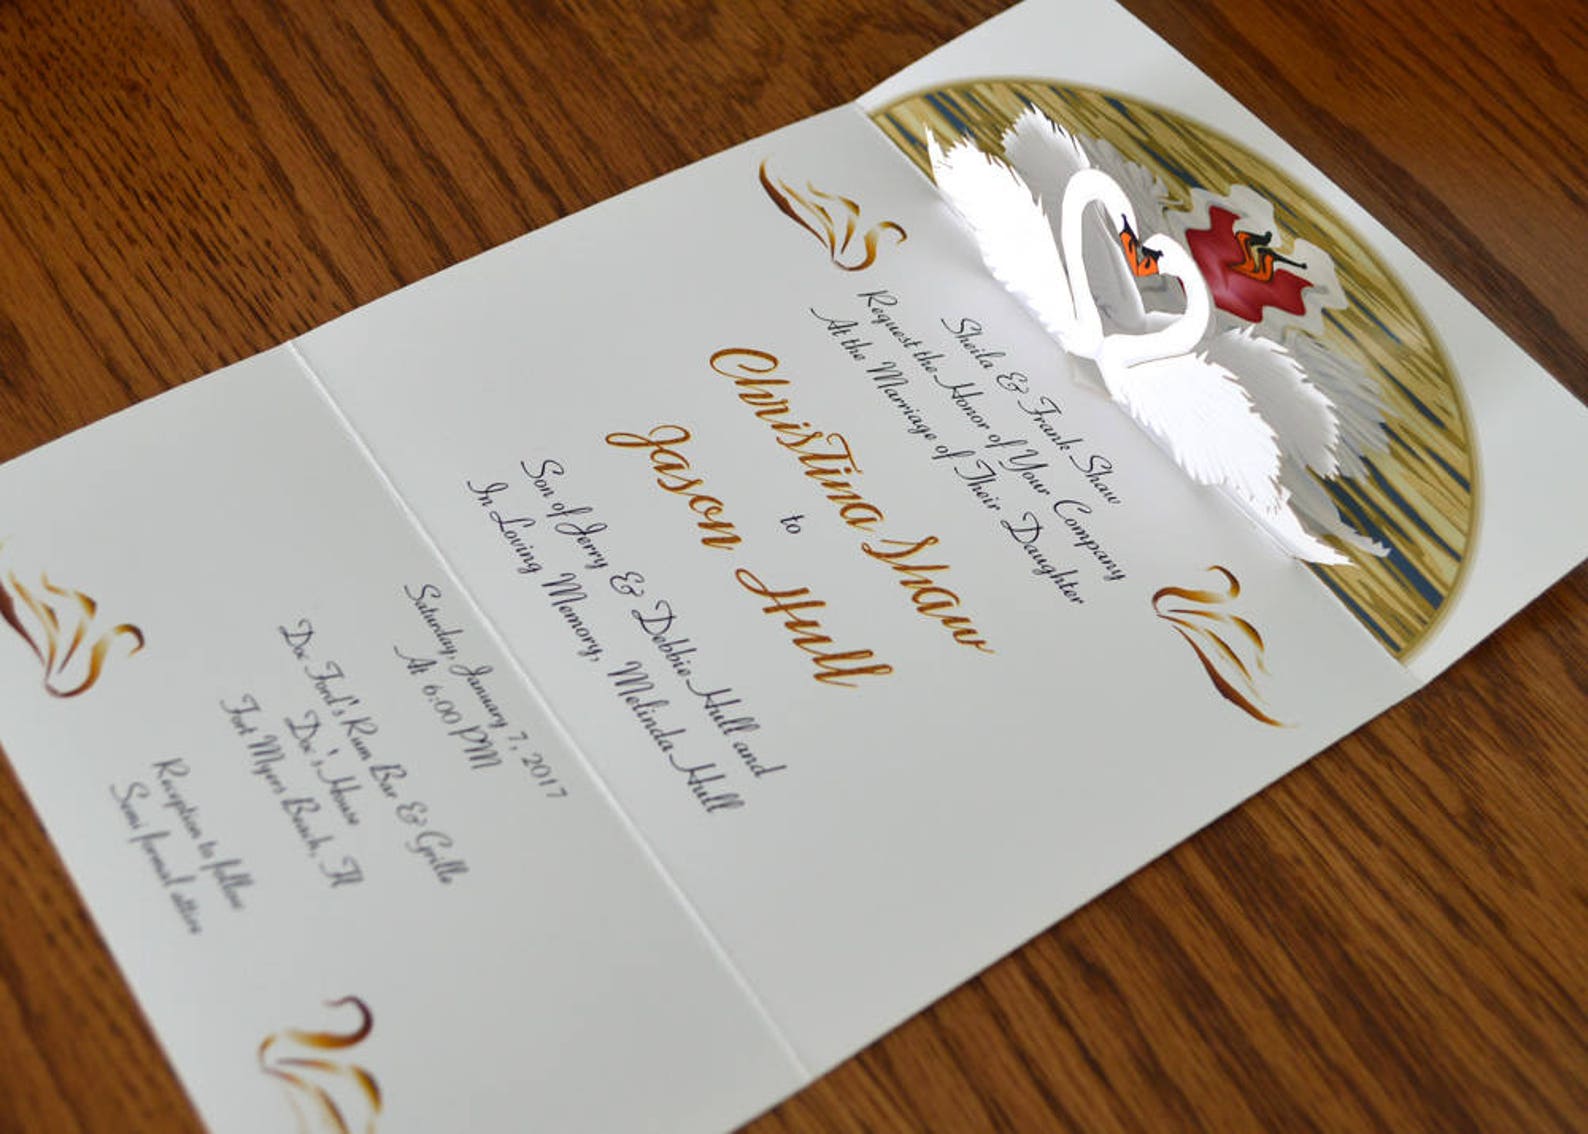 Sheila & Frank Shaw
Request the Honor of Your Company
At the Marriage of Their Daughter
Christina Shaw
to
Jason Hull
Son of Jerry & Debbie Hull and
In Loving Memory, Melinda Hull
Saturday, January 7, 2017
At 6:00 PM
Doc Ford's Rum Bar & Grille
Doc's House
Fort Myers Beach, Fl
Reception to follow
Semi formal attire